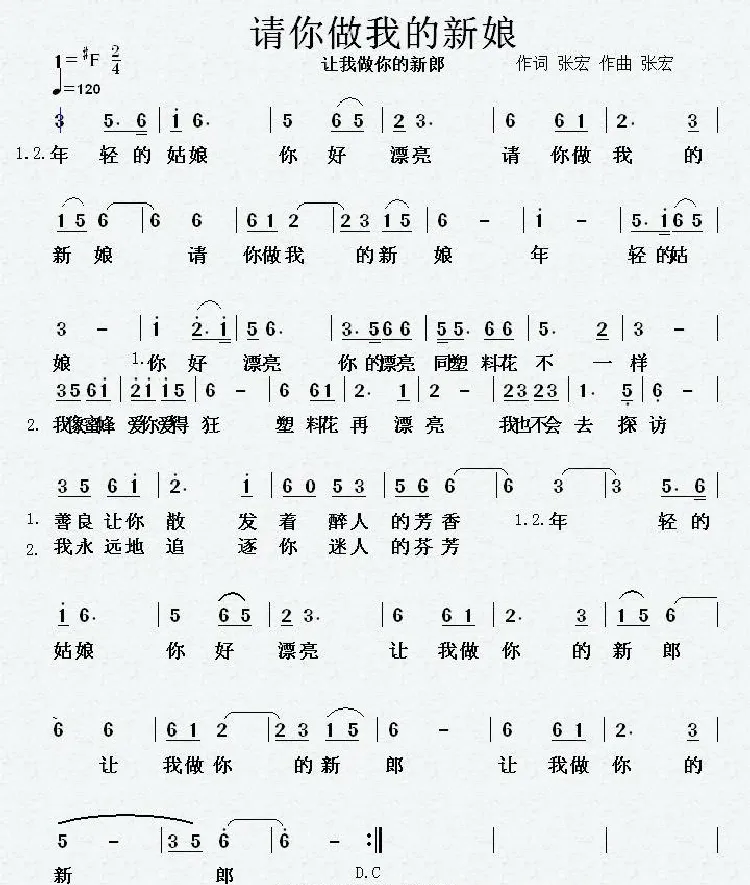 请你做我的新娘
1=#F 2/4 让我做你的新郎 作词 张宏 作曲 张宏
♩=120
3 5. 6 | i 6. | 5 6 5 | 2 3. | 6 6 1 | 2. 3 |
1.2. 年 轻 的 姑 娘 你 好 漂 亮 请 你 做 我 的
1 5 6 | 6 6 | 6 1 2 | 2 3 1 5 | 6 - | i - | 5. i 6 5 |
新 娘 请 你 做 我 的 新 娘 年 轻 的 姑
3 - | i 2. i | 5 6. | 3. 5 6 6 | 5 5. 6 6 | 5. 2 | 3 - |
娘 1.你 好 漂 亮 你 的 漂 亮 同 塑 料 花 不 一 样
3 5 6 i | 2 i i 5 | 6 - | 6 6 1 | 2. 1 | 2 - | 2 3 2 3 | 1. 5 | 6 - |
2. 我 像 蜜 蜂 爱 你 爱 得 狂 塑 料 花 再 漂 亮 我 也 不 会 去 探 访
3 5 6 i | 2. i | 6 0 5 3 | 5 6 6 | 6 3 | 3 5. 6 |
1. 善 良 让 你 散 发 着 醉 人 的 芳 香 1.2.年 轻 的
2. 我 永 远 地 追 逐 你 迷 人 的 芬 芳
i 6. | 5 6 5 | 2 3. | 6 6 1 | 2. 3 | 1 5 6 |
姑 娘 你 好 漂 亮 让 我 做 你 的 新 郎
6 6 | 6 1 2 | 2 3 1 5 | 6 - | 6 6 1 | 2. 3 |
让 我 做 你 的 新 郎 让 我 做 你 的
5 - | 3 5 6 | 6 - :||
新 郎 D.C